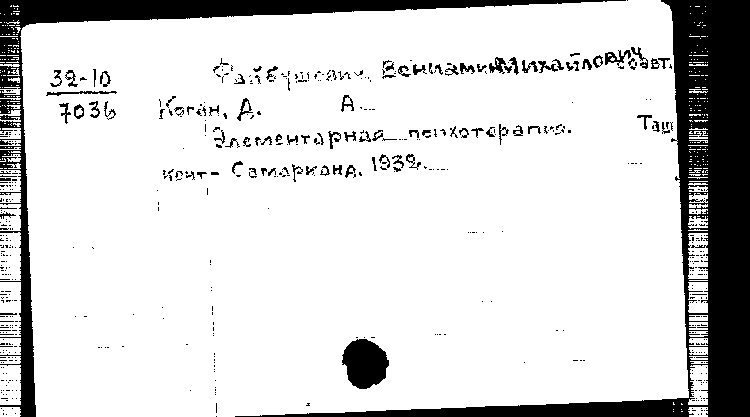 32-10
7036
Файбушевич, Вениамин Михайлович соавт.
Коган, Д. А.
Элементарная психотерапия. Таш
кент- Самарканд. 1932.